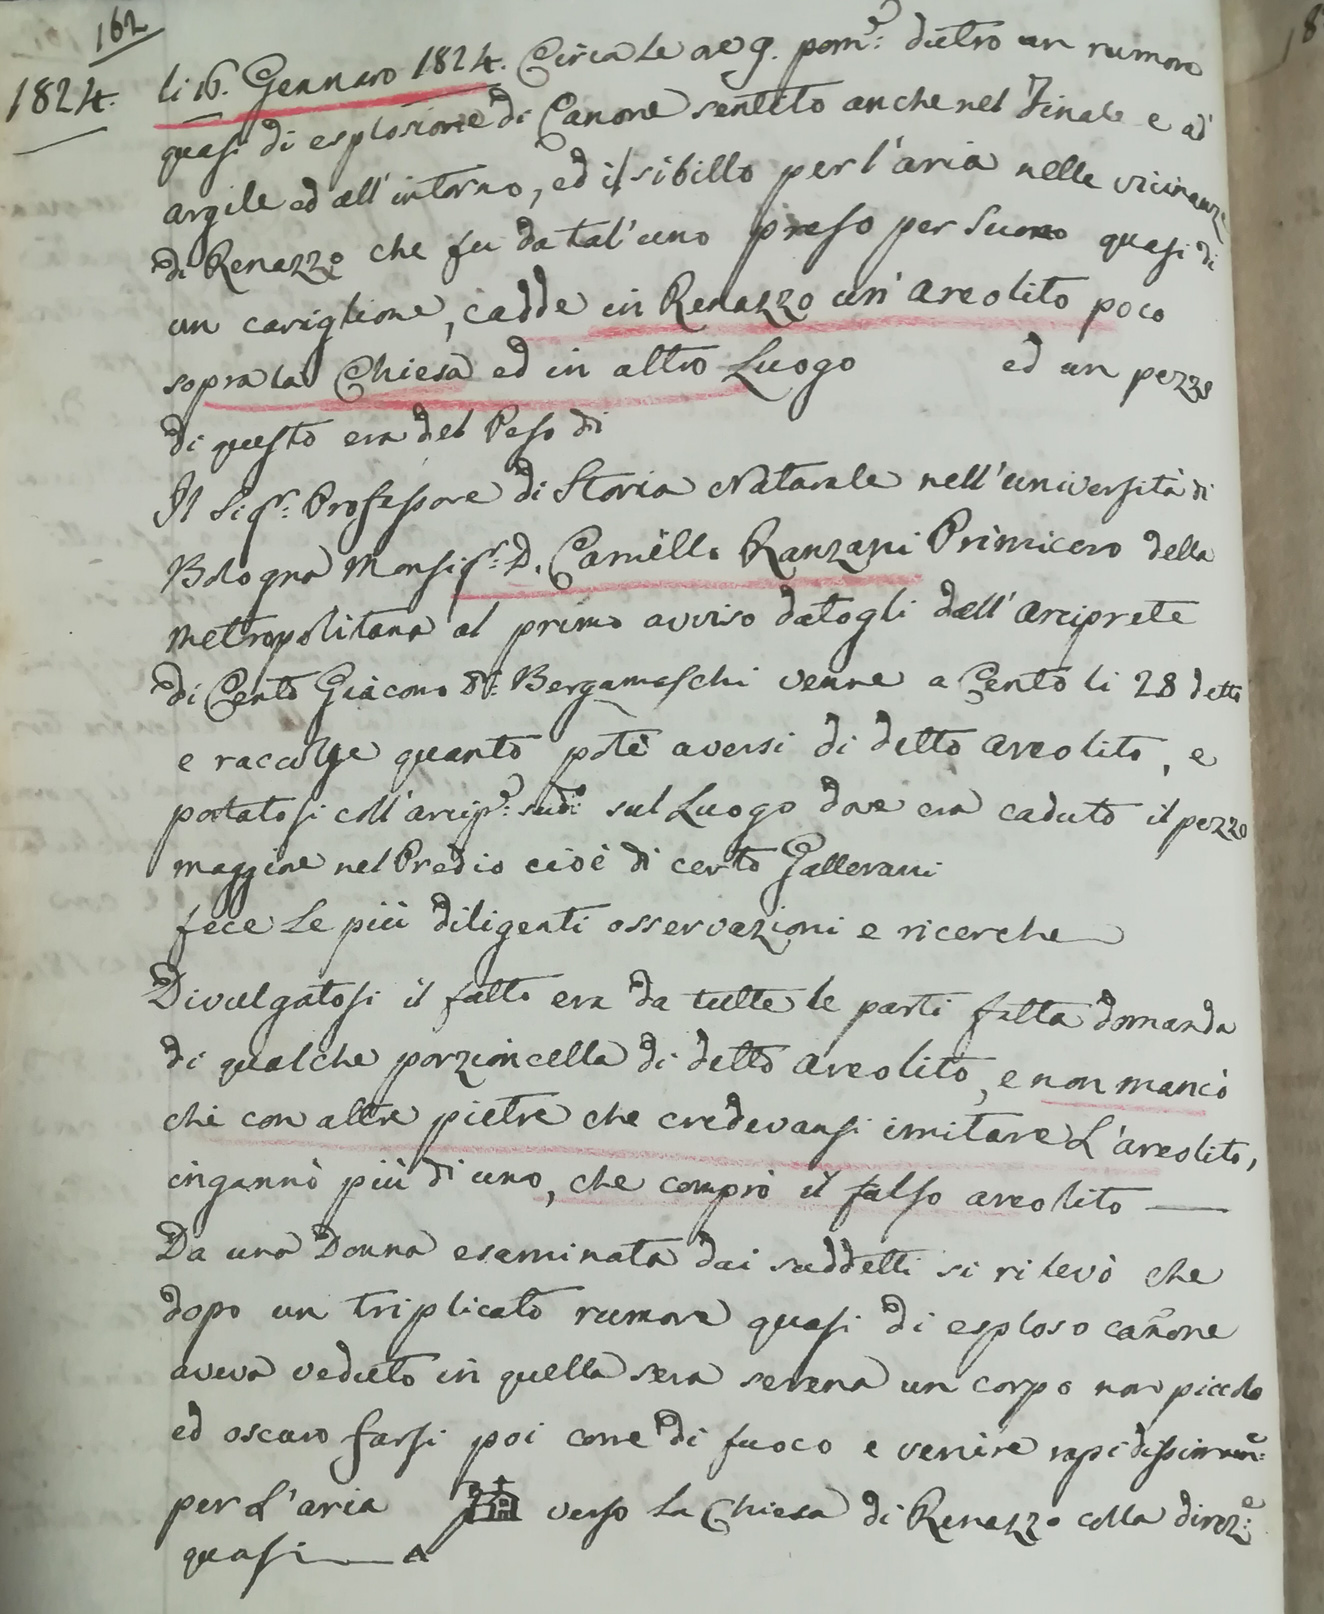 162
1824.
li 16. Gennaro 1824. Circa le ore 9. pome: dietro un rumore
quasi di esplosione di Canone sentito anche nel Finale e ad
argile ed all'intorno, ed il sibillo per l'aria nelle vicinanze
di Renazzo che fu da tal'uno preso per Suono quasi di
un caviglione, cadde in Renazzo un' areolito poco
sopra la Chiesa ed in altro Luogo ed un pezzo
di questo era del Peso di
Il Sigr: Professore di Storia Naturale nell'università di
Bologna Monsigr: D. Camillo Ranzani Primicero della
Metropolitana al primo avviso datogli dall'Arciprete
di Cento Giacomo Dr: Bergamaschi venne a Cento li 28 detto
e raccolse quanto potè aversi di detto areolito, e
portatosi coll'arcipe: sudo: sul Luogo dove era caduto il pezzo
maggiore nel Predio cioè di certo Gallerani
fece le più diligenti osservazioni e ricerche
Divulgatosi il fatto era da tutte le parti fatta domanda
di qualche porzioncella di detto areolito, e non mancò
chi con altre pietre che credevansi imitare L'areolito,
ingannò più di uno, che comprò il falso areolito
Da una Donna esaminata dai suddetti si rilevò che
dopo un triplicato rumore quasi di esploso canone
aveva veduto in quella sera serena un corpo non piccolo
ed oscuro farsi poi come di fuoco e venire rapidissimame:
per L'aria verso la Chiesa di Renazzo colla direze:
quasi a